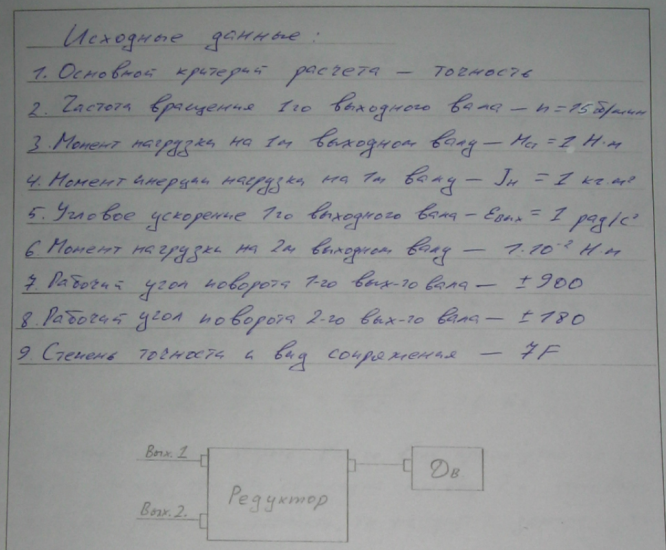 Исходные данные:
1. Основной критерий расчета — точность
2. Частота вращения 1го выходного вала — n = 15 об/мин
3. Момент нагрузки на 1м выходном валу — Mн = 1 Н·м
4. Момент инерции нагрузки на 1м валу — Jн = 1 кг·м²
5. Угловое ускорение 1го выходного вала — εвых = 1 рад/с²
6 Момент нагрузки на 2м выходном валу — 1·10⁻² Н·м
7. Рабочий угол поворота 1-го вых-го вала — ±900
8. Рабочий угол поворота 2-го вых-го вала — ±180
9. Степень точности и вид сопряжения — 7F
Вых. 1
Дв
Редуктор
Вых. 2.